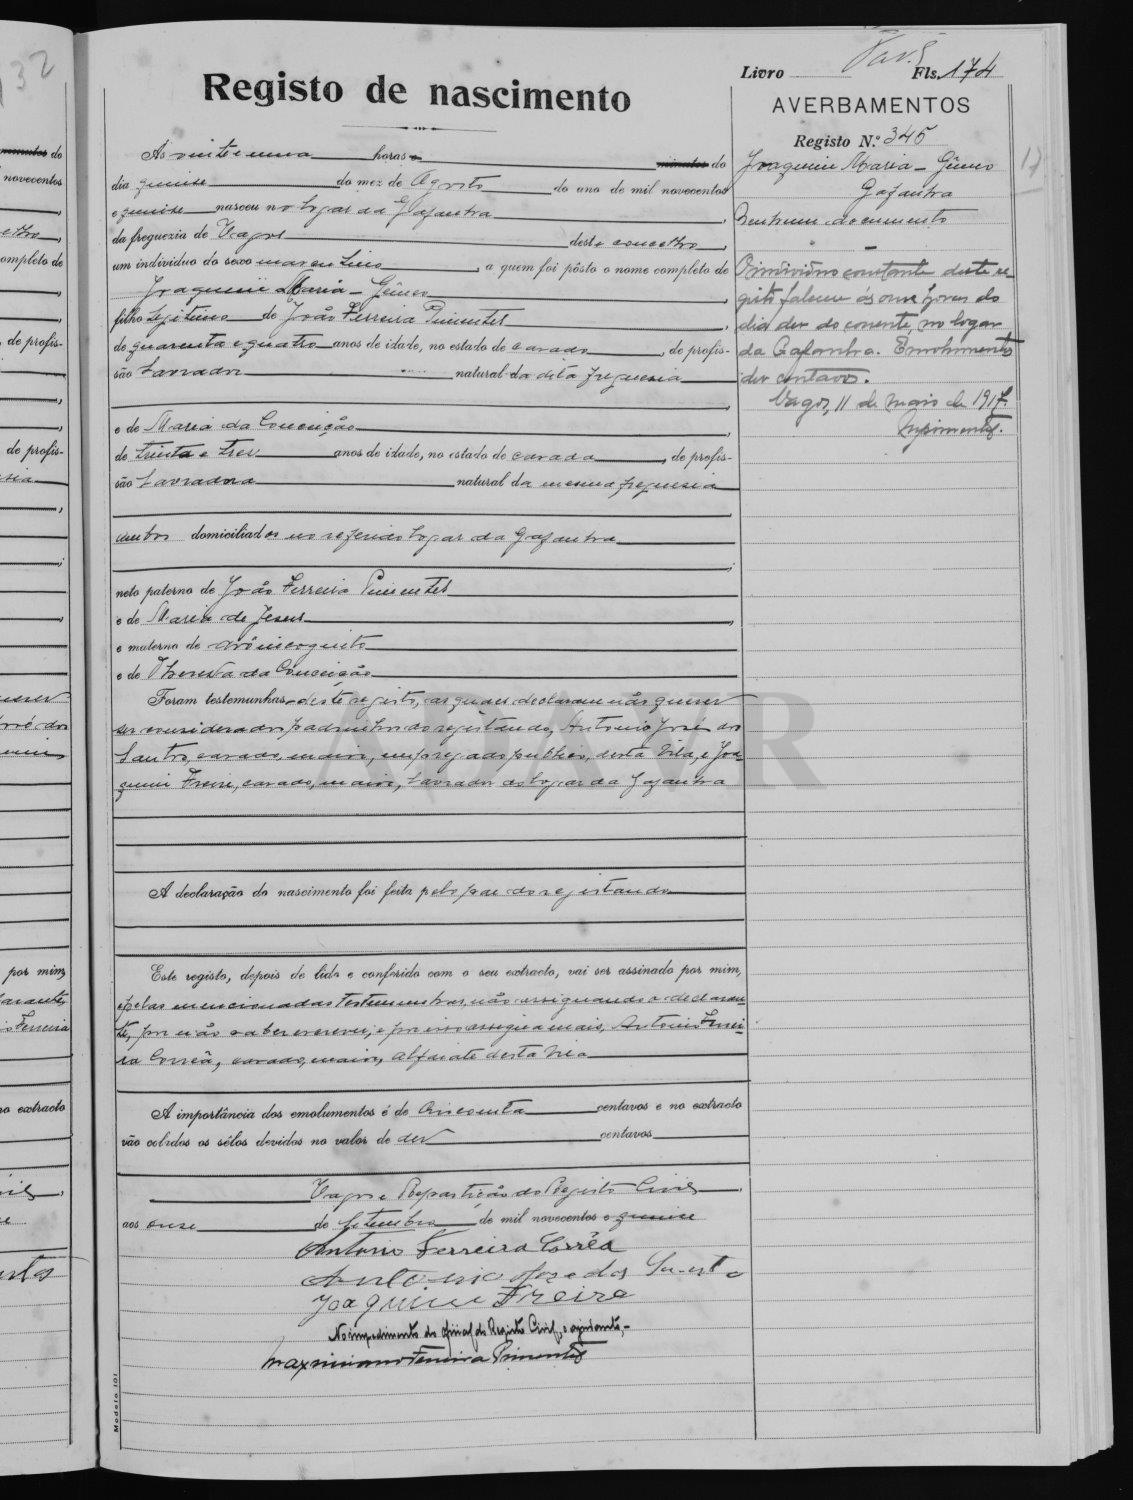 Livro Fls. 174
Registo de nascimento
AVERBAMENTOS
Registo N.º 345
Joaquim Maria - Gêmeo
Gafanha
Nenhum documento
O individuo constante deste re-
gisto faleceu ás onze horas do
dia dez do corrente, no logar
da Gafanha. Emolumentos
dez centavos.
Vagos, 11 de maio de 1917.
As vinte e uma horas e minutos do
dia quinse do mez de Agosto do ano de mil novecentos
e quinse nasceu no logar da Gafanha,
da freguezia de Vagos deste concelho,
um individuo do sexo masculino, a quem foi pôsto o nome completo de
Joaquim Maria - Gêmeo,
filho legitimo de João Ferreira Pimentel,
de quarenta e quatro anos de idade, no estado de casado, de profis-
são Lavrador natural da dita freguesia,
e de Maria da Conceição,
de trinta e tres anos de idade, no estado de casada, de profis-
são Lavradora natural da mesma freguesia
ambos domiciliados no referido logar da Gafanha
neto paterno de João Ferreira Pimentel
e de Maria de Jesus,
e materno de avô incognito
e de Thereza da Conceição
Foram testemunhas deste registo, as quaes declararam não querer
ser considerados padrinhos do registando, Antonio José dos
Santos, casado, maior, empregado publico, desta Vila, e Joa-
quim Freire, casado, maior, Lavrador do logar da Gafanha
A declaração do nascimento foi feita pelo pae do registando
Este registo, depois de lido e conferido com o seu extracto, vai ser assinado por mim,
e pelas mencionadas testemunhas, não assignando o declaran-
te, por não saber escrever, e por isso assigna mais, Antonio Ferrei-
ra Corrêa, casado, maior, alfaiate desta Vila
A importância dos emolumentos é de cincoenta centavos e no extracto
vão colados os sêlos devidos no valor de dez centavos
Vagos e Repartição do Registo Civil,
aos onse de Setembro de mil novecentos e quinse
Antonio Ferreira Corrêa
Antonio José dos Santos
Joaquim Freire
No impedimento do oficial do Registo Civil, o ajudante,-
Maximiano Ferreira Pimentel
Modelo 101